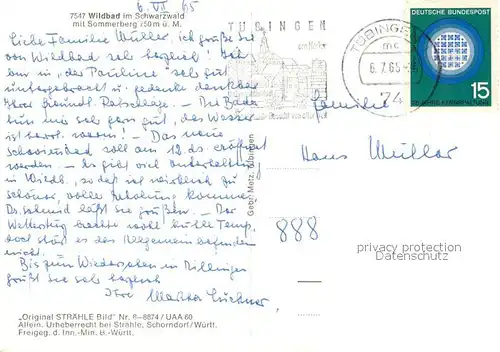 6. VII 65
7547 Wildbad im Schwarzwald
mit Sommerberg 750 m ü. M.
Liebe Familie Müller, ich grüße Sie
von Wildbad sehr herzlich. Ich
bin in "der Pauline" sehr gut
untergebracht u. gedenke dankbar
Ihrer freundl. Ratschläge. - Die Bäder
tun mir sehr gut, das Wasser
ist herrl. warm! - Das neue
Schwimmbad soll am 12. ds. eröffnet
werden. - Es gibt viel Unterhaltung
in Wildb., so daß ich wirklich zu
schöner, voller Erholung komme.
Dr. Schmid läßt Sie grüßen. - Der
Wettersturz brachte wohl kühle Temp,
doch stört es das Allgemeinbefinden
nicht.
Bis zum Wiedersehen in Dillingen
grüßt Sie sehr herzlich
Ihre Martha
TÜBINGEN
TÜBINGEN
mc
6.7.65
74
DEUTSCHE BUNDESPOST
15
Familie
Hans Müller
888
privacy protection
Datenschutz
Gebr. Metz, Tübingen
„Original STRÄHLE Bild" Nr. 6-8874 / UAA 60
Allein. Urheberrecht bei Strähle, Schorndorf/Württ.
Freigeg. d. Inn.-Min. B.-Württ.